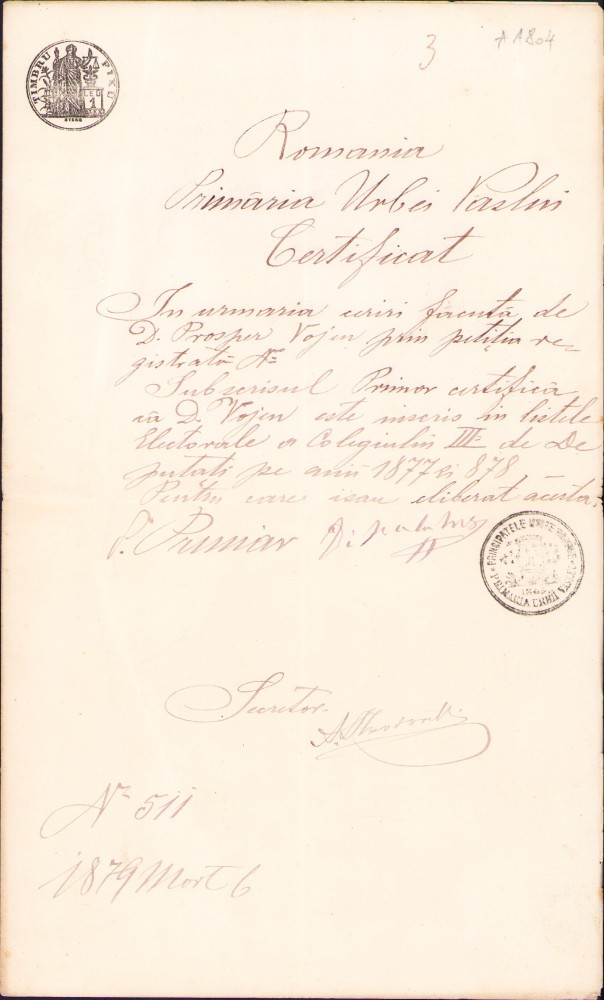 3
A 1804
TIMBRU FIXU
1 LEU
Romania
Primăria Urbei Vaslui
Certificat
In urmaria cerirei făcută de
D. Prosper Vojen prin petiţia re-
gistrată Nº
Subscrisul Primar certifică
că D. Vojen este inscris in listele
Electorale a Colegiului III de De
putati pe anii 1877 si 878
Pentru care isau eliberat acesta.
P. Primar
PRINCIPATELE UNITE ROMANE
PRIMARIA URBII VASLUI
Secretar
Nº 511
1879 Mart 6